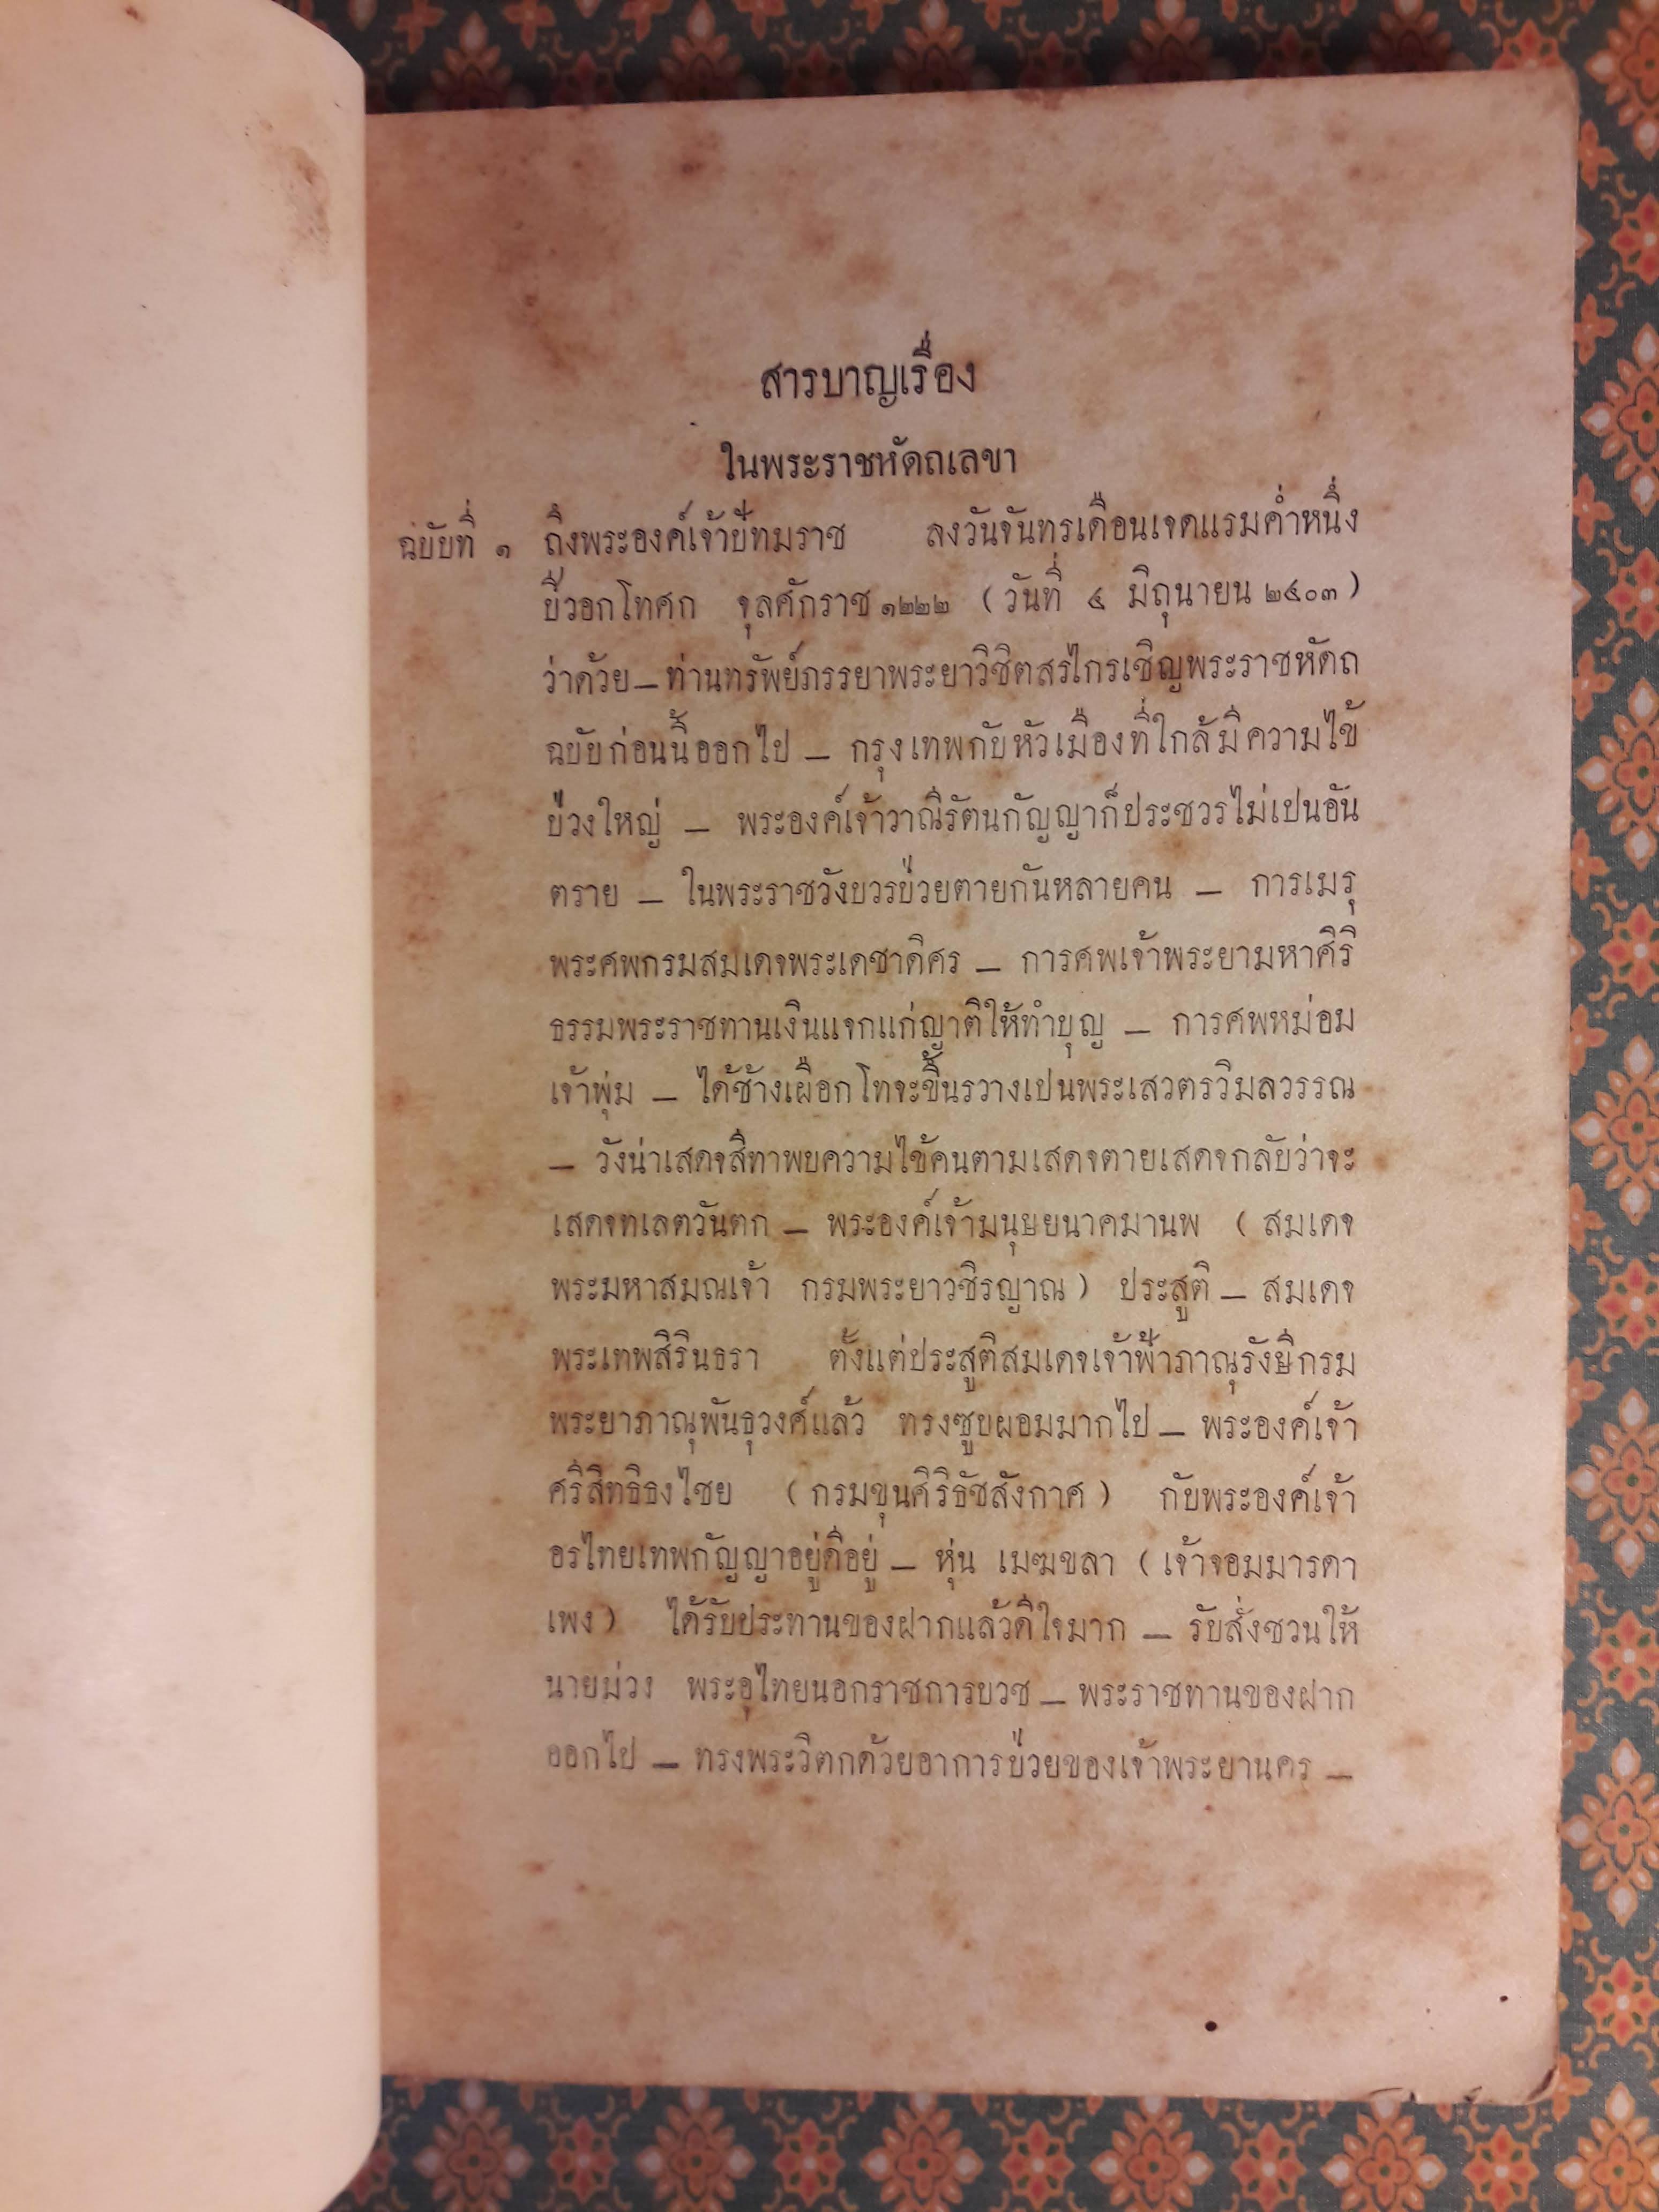 สารบาญเรื่อง
ในพระราชหัดถเลขา
ฉบับที่ ๑ ถึงพระองค์เจ้าปัทมราช ลงวันจันทรเดือนเจดแรมค่ำหนึ่ง
ปีวอกโทศก จุลศักราช ๑๒๒๒ (วันที่ ๔ มิถุนายน ๒๔๐๓)
ว่าด้วย—ท่านทรัพย์ภรรยาพระยาวิชิตสรไกรเชิญพระราชหัดถ
ฉบับก่อนนี้ออกไป — กรุงเทพกับหัวเมืองที่ใกล้มีความไข้
ป่วงใหญ่ — พระองค์เจ้าวาณีรัตนกัญญาก็ประชวรไม่เปนอัน
ตราย — ในพระราชวังบวรป่วยตายกันหลายคน — การเมรุ
พระศพกรมสมเดจพระเดชาดิศร — การศพเจ้าพระยามหาศิริ
ธรรมพระราชทานเงินแจกแก่ญาติให้ทำบุญ — การศพหม่อม
เจ้าพุ่ม — ได้ช้างเผือกโทจะขึ้นรวางเปนพระเสวตรวิมลวรรณ
— วังน่าเสดจสีทาพบความไข้คนตามเสดจตายเสดจกลับว่าจะ
เสดจทเลตวันตก — พระองค์เจ้ามนุษยนาคมานพ (สมเดจ
พระมหาสมณเจ้า กรมพระยาวชิรญาณ) ประสูติ — สมเดจ
พระเทพสิรินธรา ตั้งแต่ประสูติสมเดจเจ้าฟ้าภาณุรังษีกรม
พระยาภาณุพันธุวงศ์แล้ว ทรงซูบผอมมากไป — พระองค์เจ้า
ศรีสิทธิธงไชย (กรมขุนศิริธัชสังกาศ) กับพระองค์เจ้า
อรไทยเทพกัญญาอยู่ดีอยู่ — หุ่น เมฆขลา (เจ้าจอมมารดา
เพง) ได้รับประทานของฝากแล้วดีใจมาก — รับสั่งชวนให้
นายม่วง พระอุไทยนอกราชการบวช — พระราชทานของฝาก
ออกไป — ทรงพระวิตกด้วยอาการป่วยของเจ้าพระยานคร —